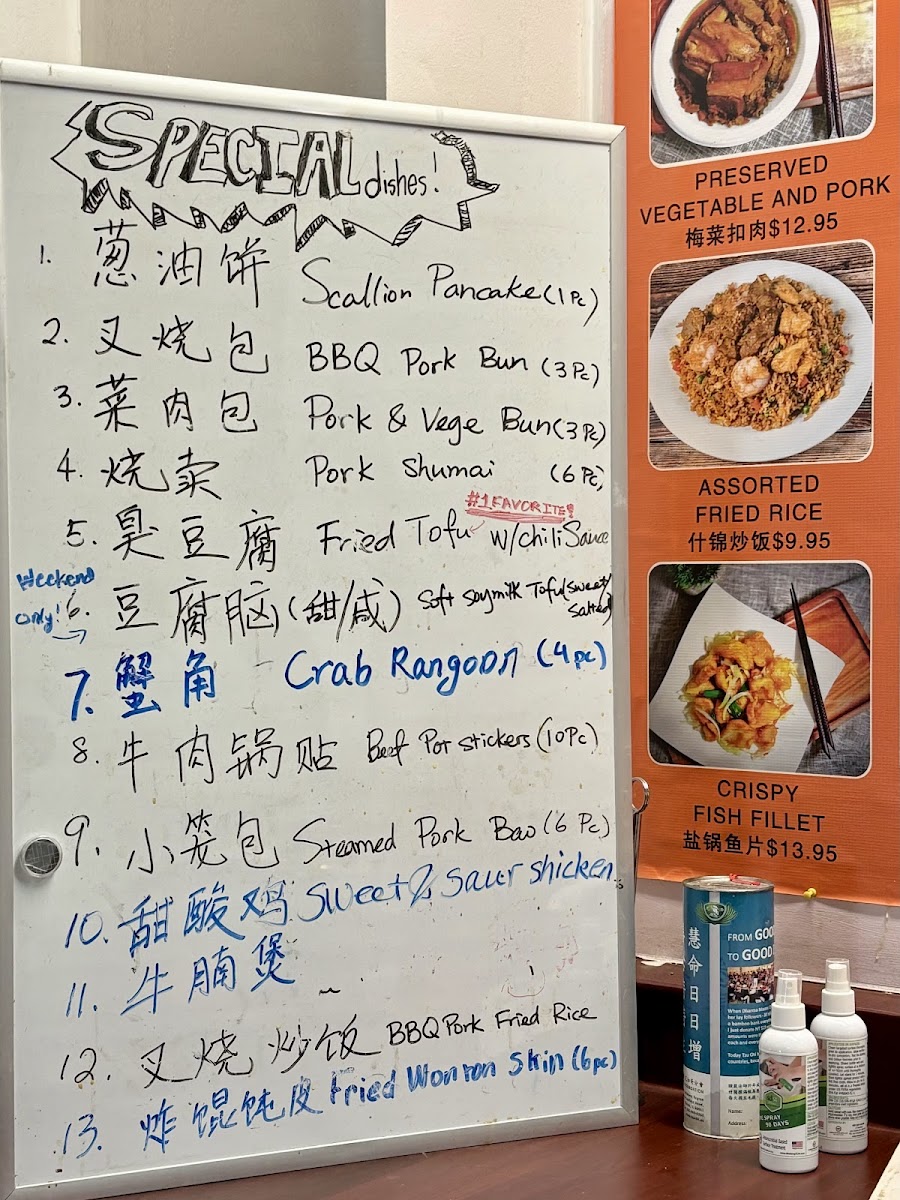 SPECIAL dishes!
1. 葱油饼 Scallion Pancake (1 Pc)
2. 叉烧包 BBQ Pork Bun (3 Pc)
3. 菜肉包 Pork & Vege Bun (3 Pc)
4. 烧卖 Pork Shumai (6 Pc)
#1 FAVORITE!
5. 臭豆腐 Fried Tofu w/chili Sauce
Weekend only!
6. 豆腐脑 (甜/咸) Soft Soymilk Tofu (sweet/salted)
7. 蟹角 Crab Rangoon (4 pc)
8. 牛肉锅贴 Beef Pot stickers (10 Pc)
9. 小笼包 Steamed Pork Bao (6 Pc)
10. 甜酸鸡 Sweet & Saur shicken
11. 牛腩煲
12. 叉烧炒饭 BBQ Pork Fried Rice
13. 炸馄饨皮 Fried Wonton Skin (6 pc)
PRESERVED
VEGETABLE AND PORK
梅菜扣肉$12.95
ASSORTED
FRIED RICE
什锦炒饭$9.95
CRISPY
FISH FILLET
盐锅鱼片$13.95
慧命日日增
FROM GOO
TO GOOD
Name:
Address:
SPRAY
90 DAYS